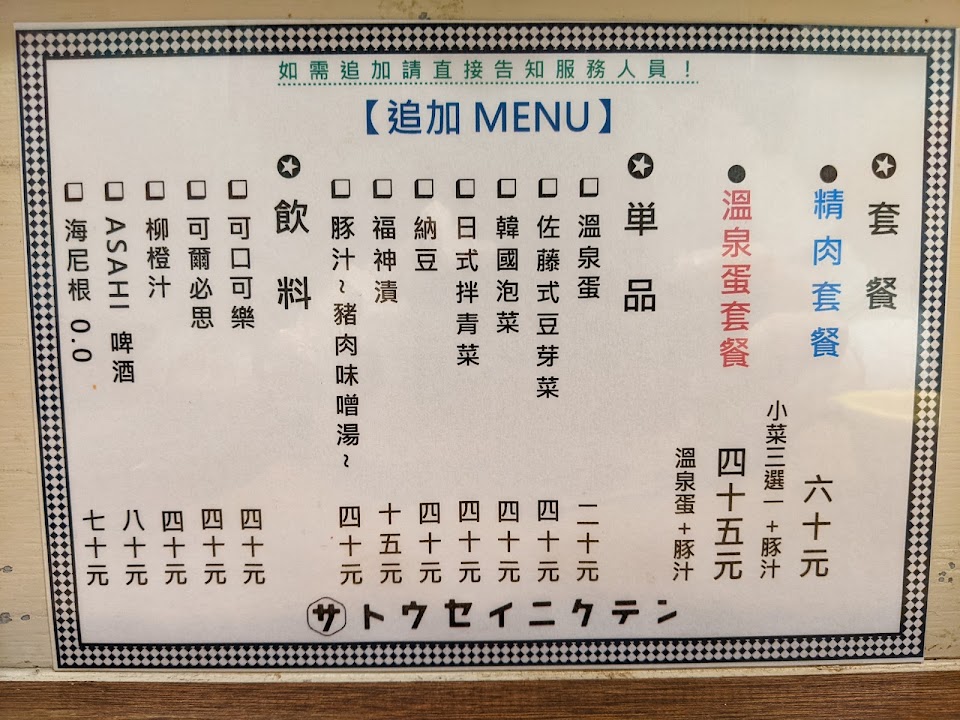 如需追加請直接告知服務人員！
【追加 MENU】
✪ 套餐
● 精肉套餐 六十元
小菜三選一 + 豚汁
● 溫泉蛋套餐 四十五元
溫泉蛋 + 豚汁
✪ 単品
❑ 溫泉蛋 二十元
❑ 佐藤式豆芽菜 四十元
❑ 韓國泡菜 四十元
❑ 日式拌青菜 四十元
❑ 納豆 四十元
❑ 福神漬 十五元
❑ 豚汁~豬肉味噌湯~ 四十元
✪ 飲料
❑ 可口可樂 四十元
❑ 可爾必思 四十元
❑ 柳橙汁 四十元
❑ ASAHI 啤酒 八十元
❑ 海尼根 0.0 七十元
サトウセイニクテン